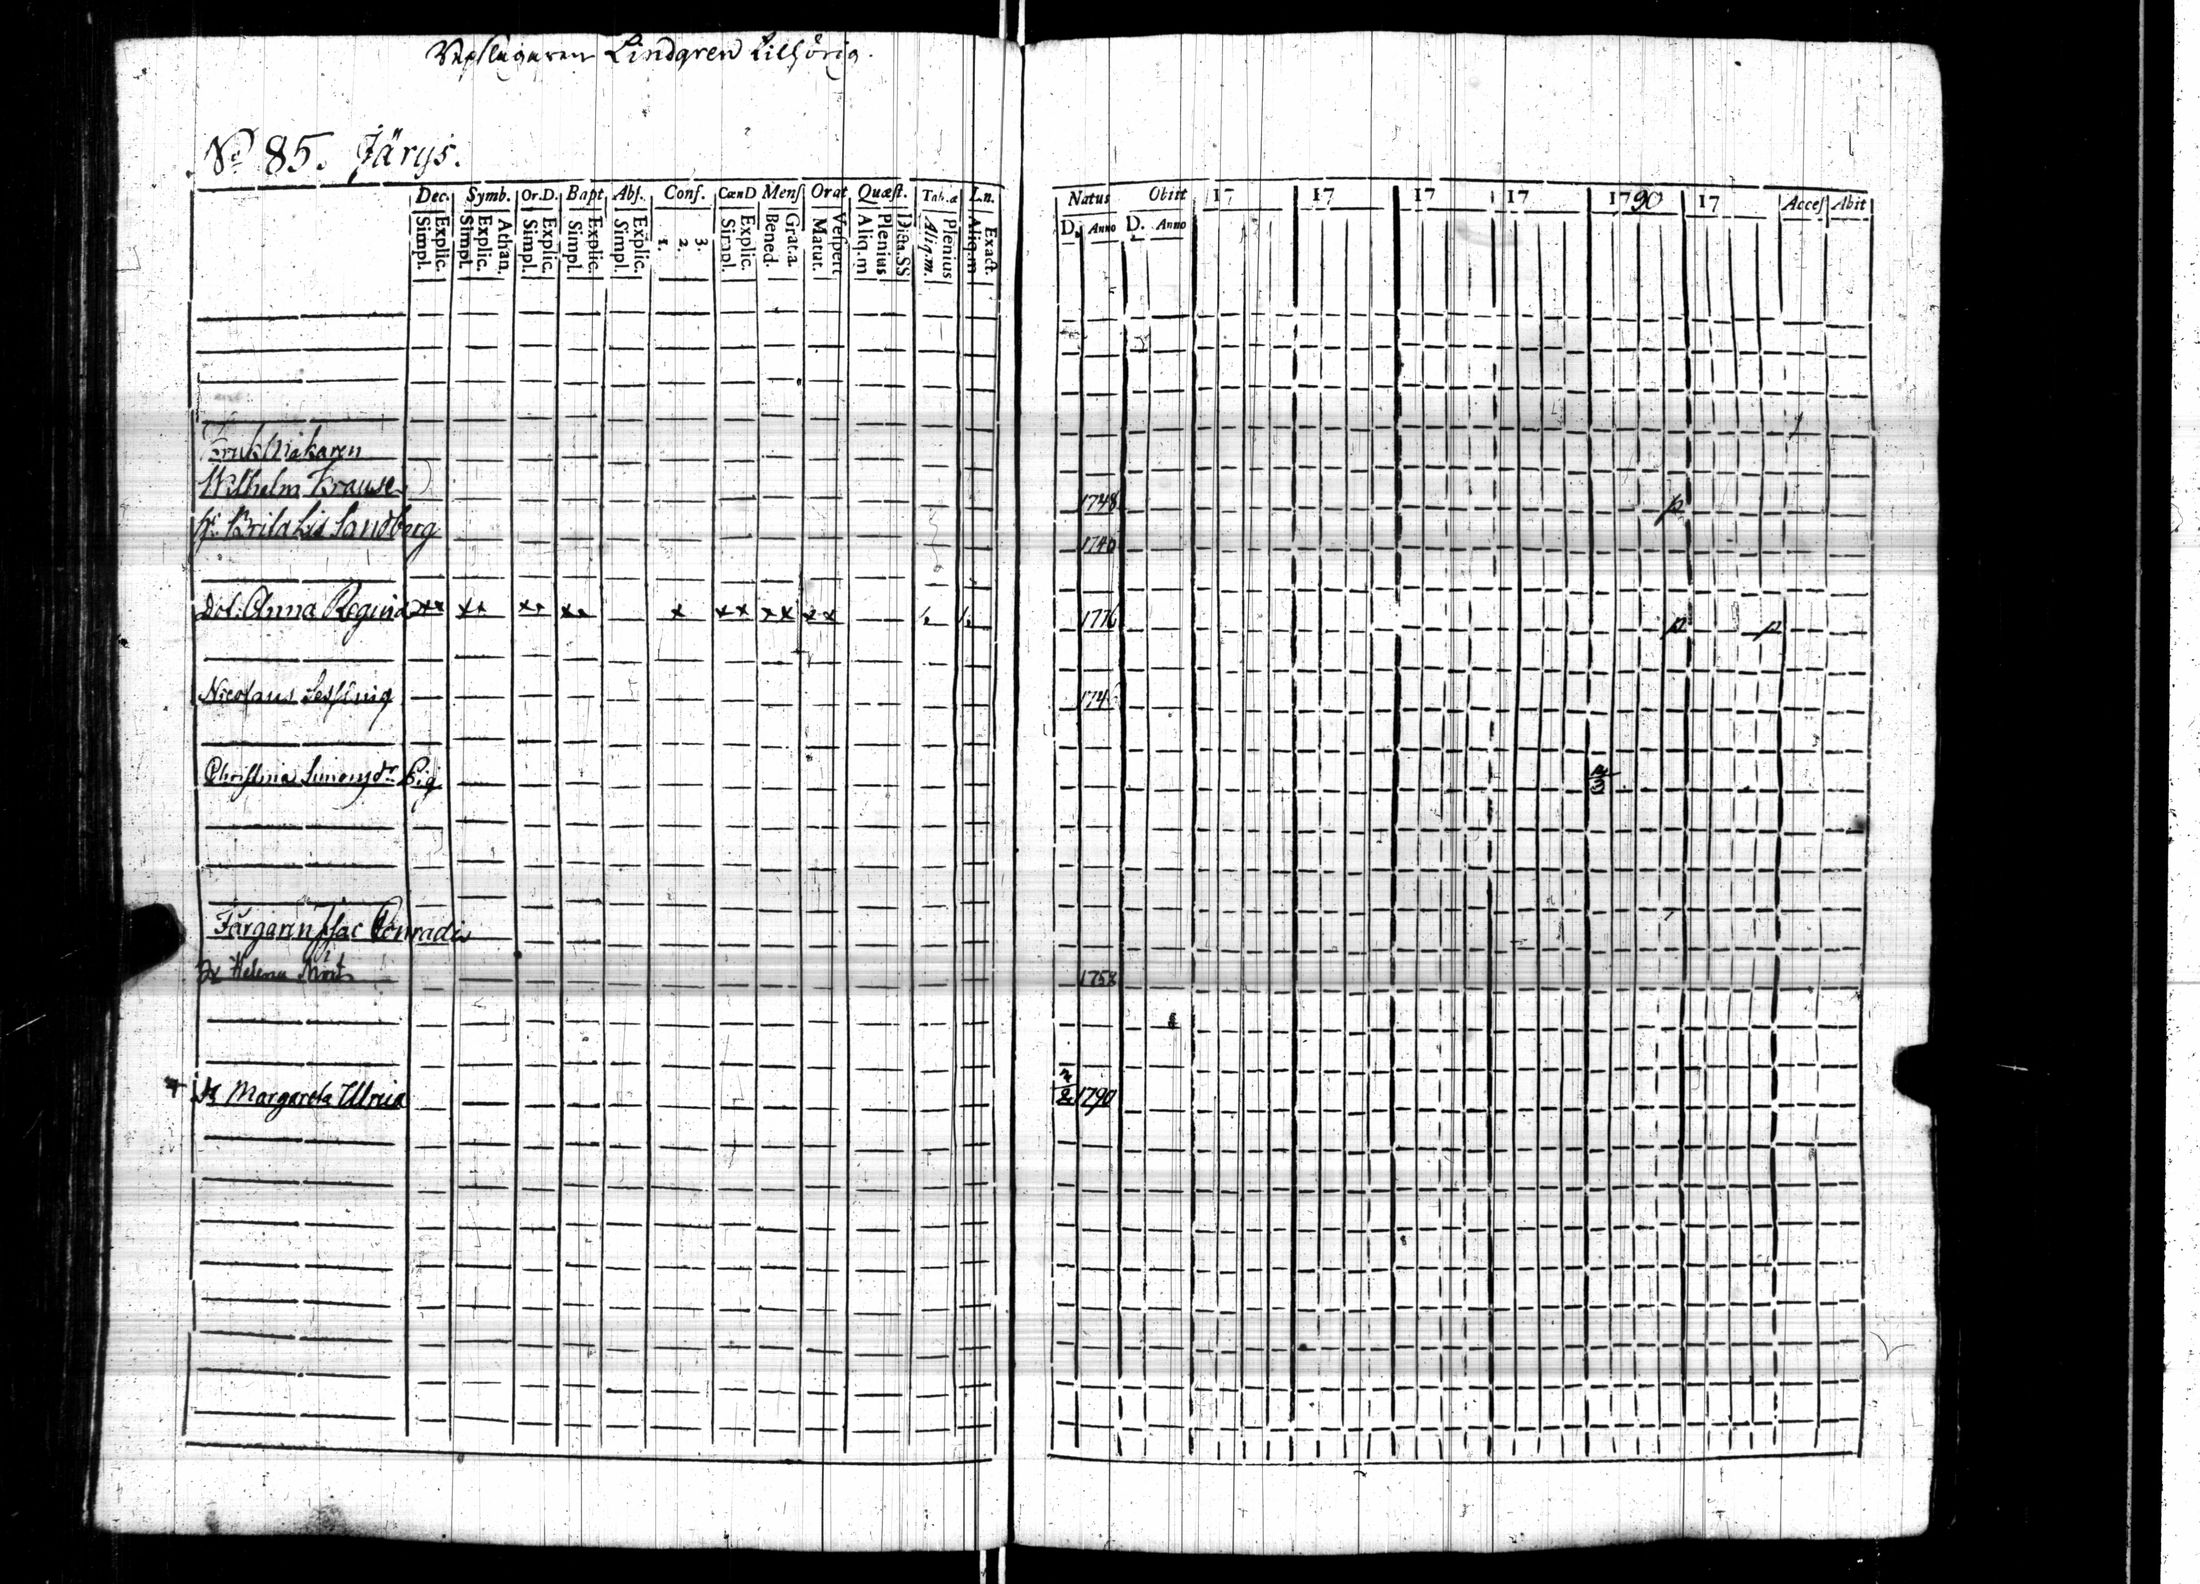 Lindgren tilhörig.
No 85. Järys.
Dec. Symb. Or.D. Bapt Abs. Conf. CœnD Mens Orat Quæst. Tab.æ L.n.
Simpl. Explic. Simpl. Explic. Athan. Simpl. Explic. Simpl. Explic. Simpl. Explic. 1. 2. 3. Simpl. Explic. Bened. Grat.a. Matut. Vespert Aliq.m Plenius Dicta.SS Aliq.m. Plenius Aliq.m Exact.
Natus Obiit 17 17 17 17 1790 17 Acces Abit
D. Anno D. Anno
Wilhelm Krause 1748 p
Brita Lis Sandberg 1740
Dot: Anna Regina xx xx xx xx x xx xx xx 1776 p p
Nicolaus 1746
Christina Simonsdr Pig
Färgaren Isac Conradi
Helena 1758
Margareta Ulrica 1790